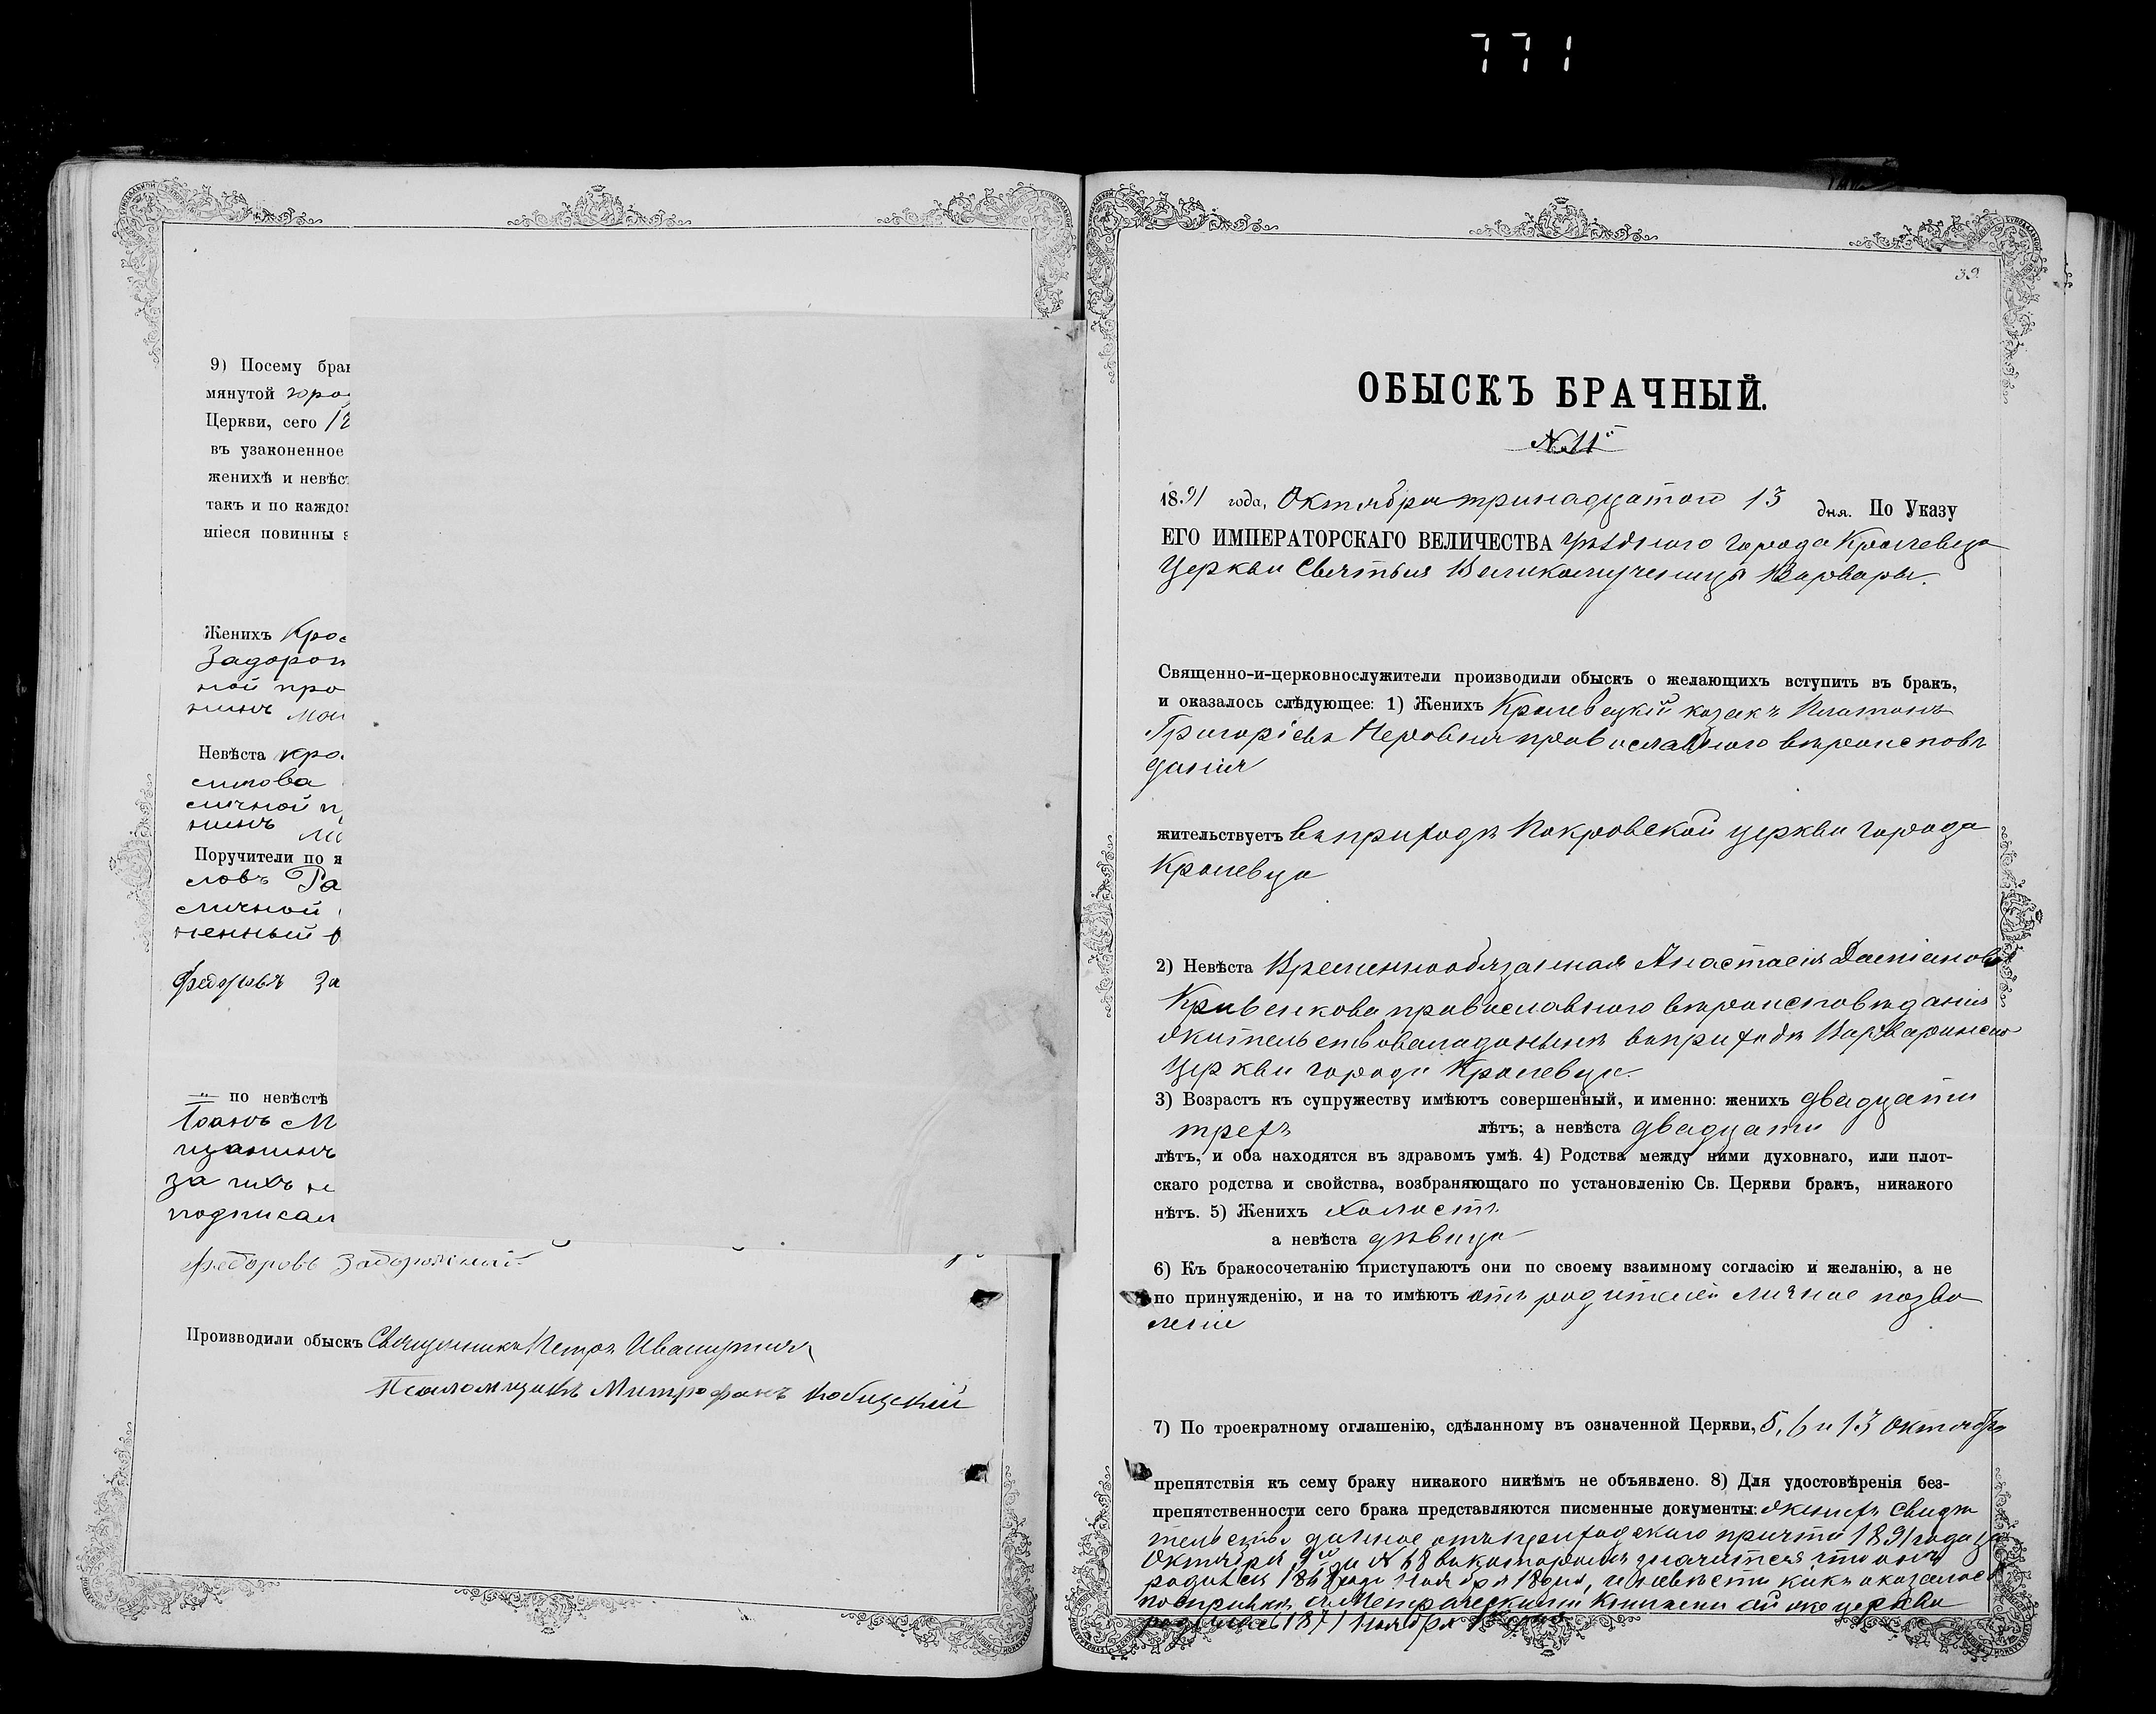 771
9) Посему брак
мянутой горо
Церкви, сего 12
въ узаконенное
женихѣ и невѣс
такъ и по каждо
шіеся повинны
Женихъ Крол
Задорож
ной про
нинъ
Невѣста кро
ситова
сличной п
нинъ
Поручители по
словъ Га
сличной
ненный
Федоровъ За
" по невѣстѣ
Іоанъ М
щанинъ
за ихъ н
подписал
Федоровъ Задорожный
Производили обыскъ Священникъ Петръ
Псаломщикъ Митрофанъ
39
ОБЫСКЪ БРАЧНЫЙ.
№ 11й
1891 года, Октября тринадцатого 13 дня. По Указу
ЕГО ИМПЕРАТОРСКАГО ВЕЛИЧЕСТВА уѣздного города Кролевца
Церкви Святыя Великомученицы Варвары.
Священно-и-церковнослужители производили обыскъ о желающихъ вступить въ бракъ,
и оказалось слѣдующее: 1) Женихъ Кролевецкій козакъ Платонъ
Григоріевъ православного вѣроисповѣ
данія
жительствуетъ въ приходѣ Покровской церкви города
Кролевца
2) Невѣста Временнообязанная Анастасія Даміанова
Кривенкова православного вѣроисповѣданія
жительствовала донынѣ въ приходѣ Варваринско
Церкви города Кролевца.
3) Возрастъ къ супружеству имѣютъ совершенный, и именно: женихъ двадцати
трехъ лѣтъ; а невѣста двадцати
лѣтъ, и оба находятся въ здравомъ умѣ. 4) Родства между ними духовнаго, или плот-
скаго родства и свойства, возбраняющаго по установленію Св. Церкви бракъ, никакого
нѣтъ. 5) Женихъ холостъ
а невѣста дѣвица
6) Къ бракосочетанію приступаютъ они по своему взаимному согласію и желанію, а не
по принужденію, и на то имѣютъ отъ родителей личное позво
леніе
7) По троекратному оглашенію, сдѣланному въ означенной Церкви, 5, 6 и 13 Октября
препятствія къ сему браку никакого никѣмъ не объявлено. 8) Для удостовѣренія без-
препятственности сего брака представляются писменные документы: женихъ свидѣ
тельство данное отъ приходского причта 1891 года
Октября 9го за № 68 въ которомъ значится что онъ
родился 1868 года Ноября 18 дня, и невѣсти какъ оказалось
по справкѣ съ Метрическими Книгами ой же церкви
родилась 1871 Ноября